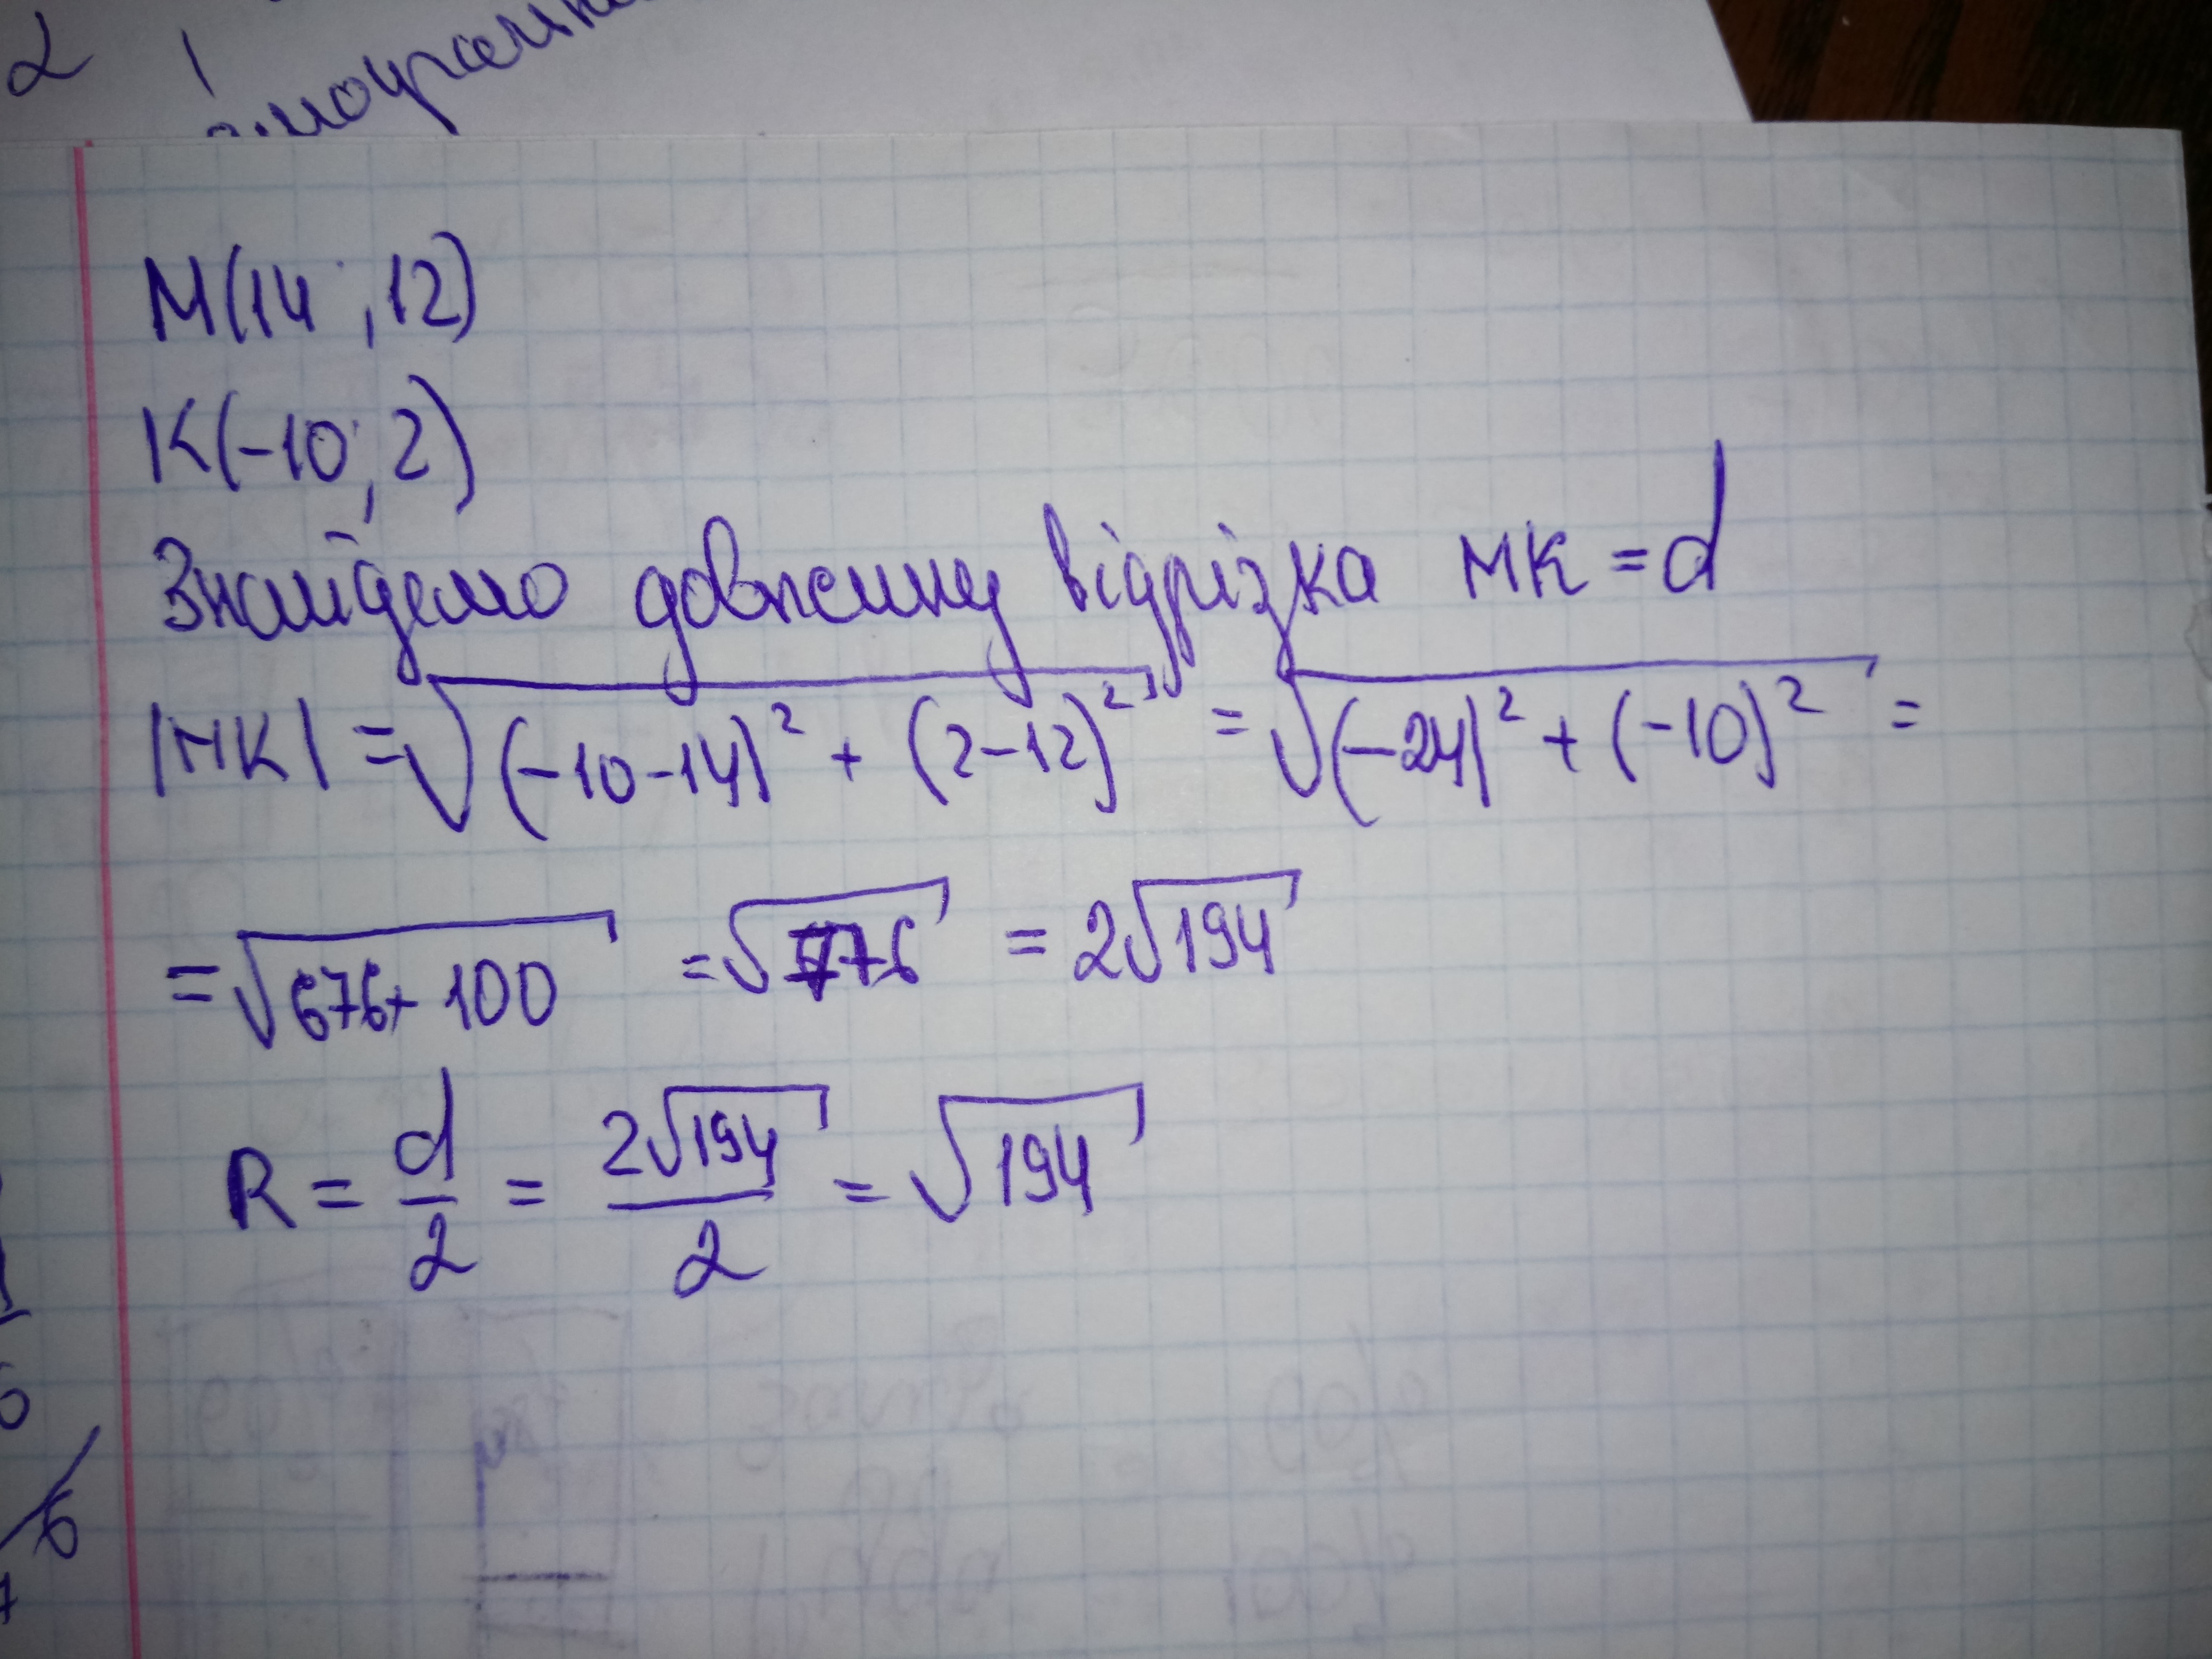 2
M(14 ; 12)
K(-10; 2)
Знайдемо довжину відрізка MK = d
|MK| = √((-10-14)² + (2-12)²) = √((-24)² + (-10)²) =
= √(676+100) = √776 = 2√194
R = d/2 = 2√194/2 = √194